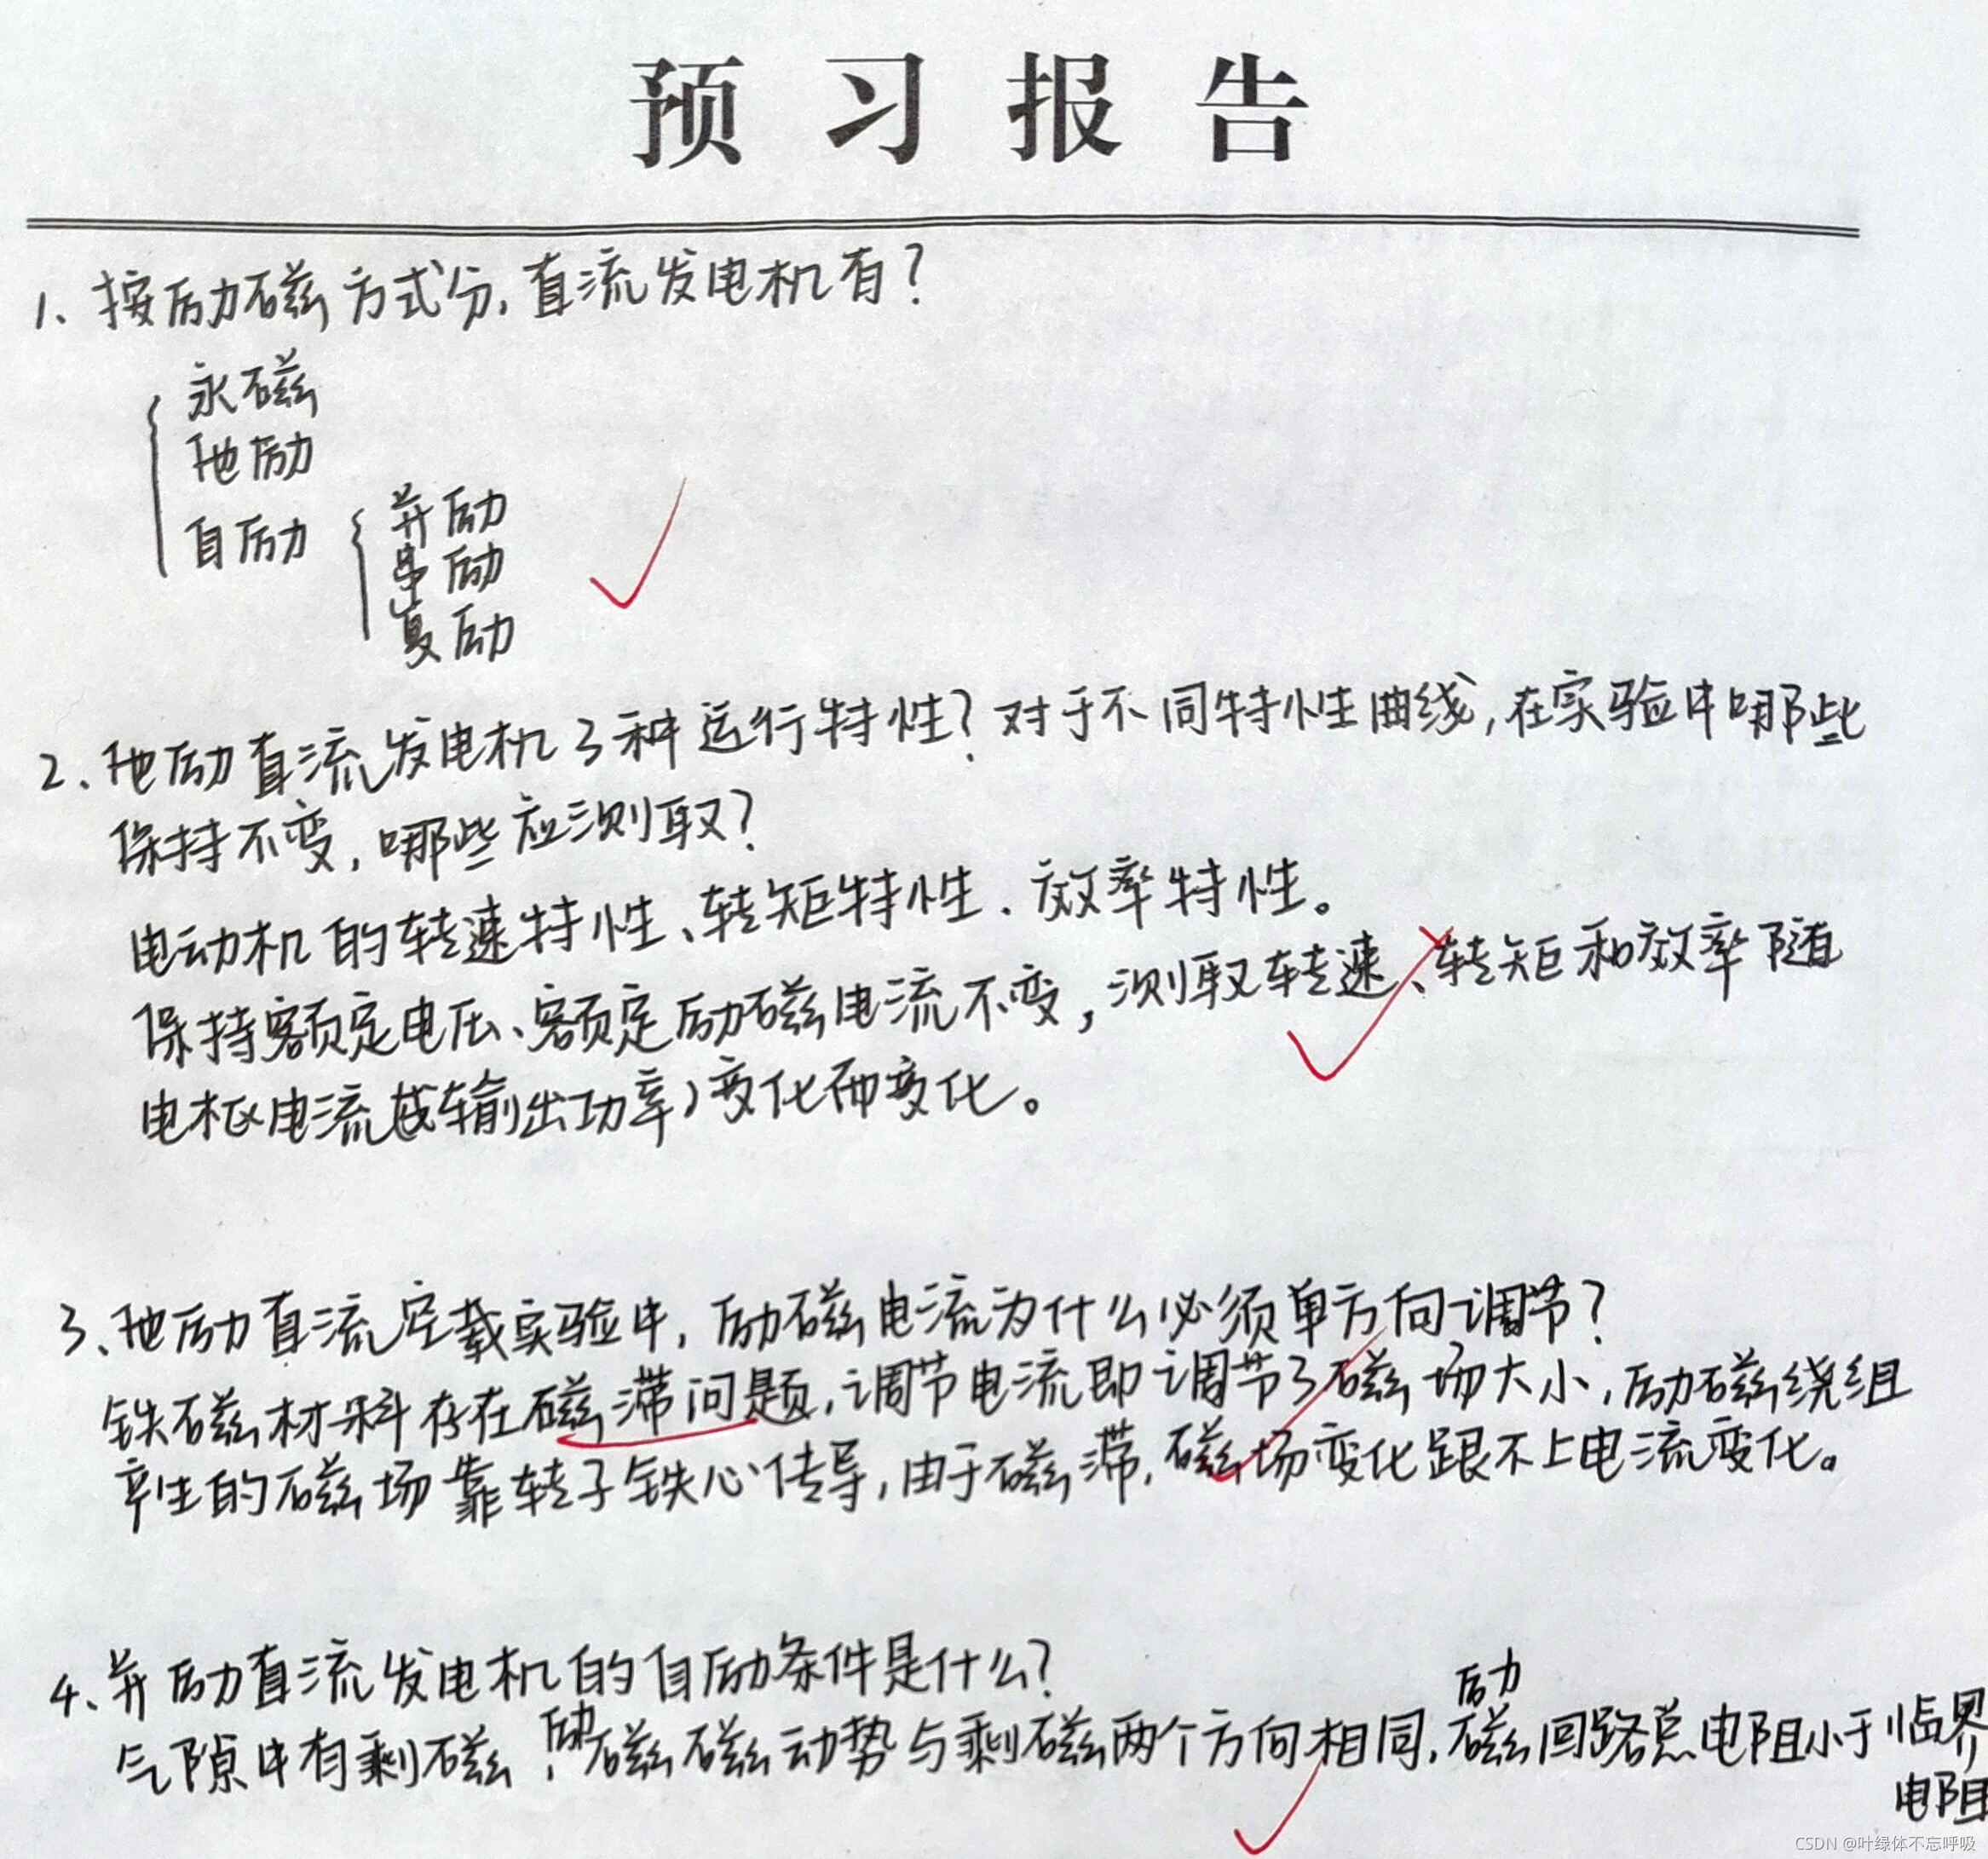 预习报告
1、按励磁方式分,直流发电机有?
永磁
他励
自励
并励
串励
复励
2、他励直流发电机3种运行特性?对于不同特性曲线,在实验中哪些
保持不变,哪些应测取?
电动机的转速特性、转矩特性、效率特性。
保持额定电压、额定励磁电流不变,测取转速、转矩和效率随
电枢电流(或输出功率)变化而变化。
3、他励直流空载实验中,励磁电流为什么必须单方向调节?
铁磁材料存在磁滞问题,调节电流即调节了磁场大小,励磁绕组
产生的磁场靠转子铁心传导,由于磁滞,磁场变化跟不上电流变化。
4、并励直流发电机的自励条件是什么?
气隙中有剩磁,励磁磁动势与剩磁两个方向相同,励磁回路总电阻小于临界
电阻
CSDN @叶绿体不忘呼吸